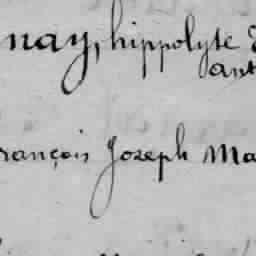 nay, hippolyte
ant
rançois Joseph Ma